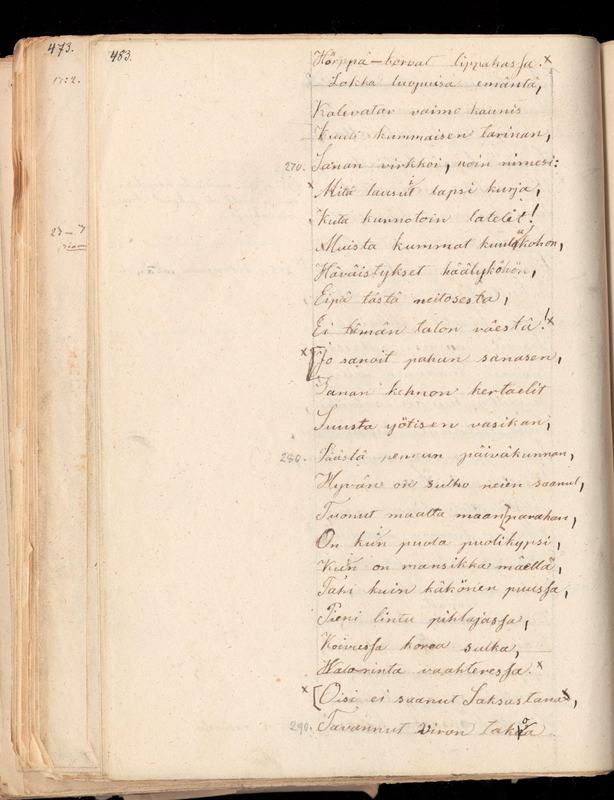 473.
483.
17:2.
Hörppä-korvat lippahassa.x
Lokka luopuisa emäntä,
Kalevatar vaimo kaunis
Kuuli kummaisen tarinan,
270. Sanan virkkoi, noin nimesi:
x Mitä lausut lapsi kurja,
Kuta kunnotoin latelit!
23–7
Muista kummat kuulukohon,
Häväistykset häälyköhön,
Eipä tästä neitosesta,
Ei tämän talon väestä!x
x [Jo sanoit pahan sanasen,
Sanan kehnon kertaelit
Suusta yötisen vasikan,
280. Päästä pennun päiväkunnan,
Hyvän on sulho neien saanut,
Tuonut maalta maan parahan,
On kuin puola puolikypsi,
Kuin on mansikka mäellä,
Tahi kuin käkönen puussa,
Pieni lintu pihlajassa,
Koivussa korea sulka,
Walorinta vaahteressa.x
x [Oisi ei saanut Saksastana,
290. Tavannut Viron takoa